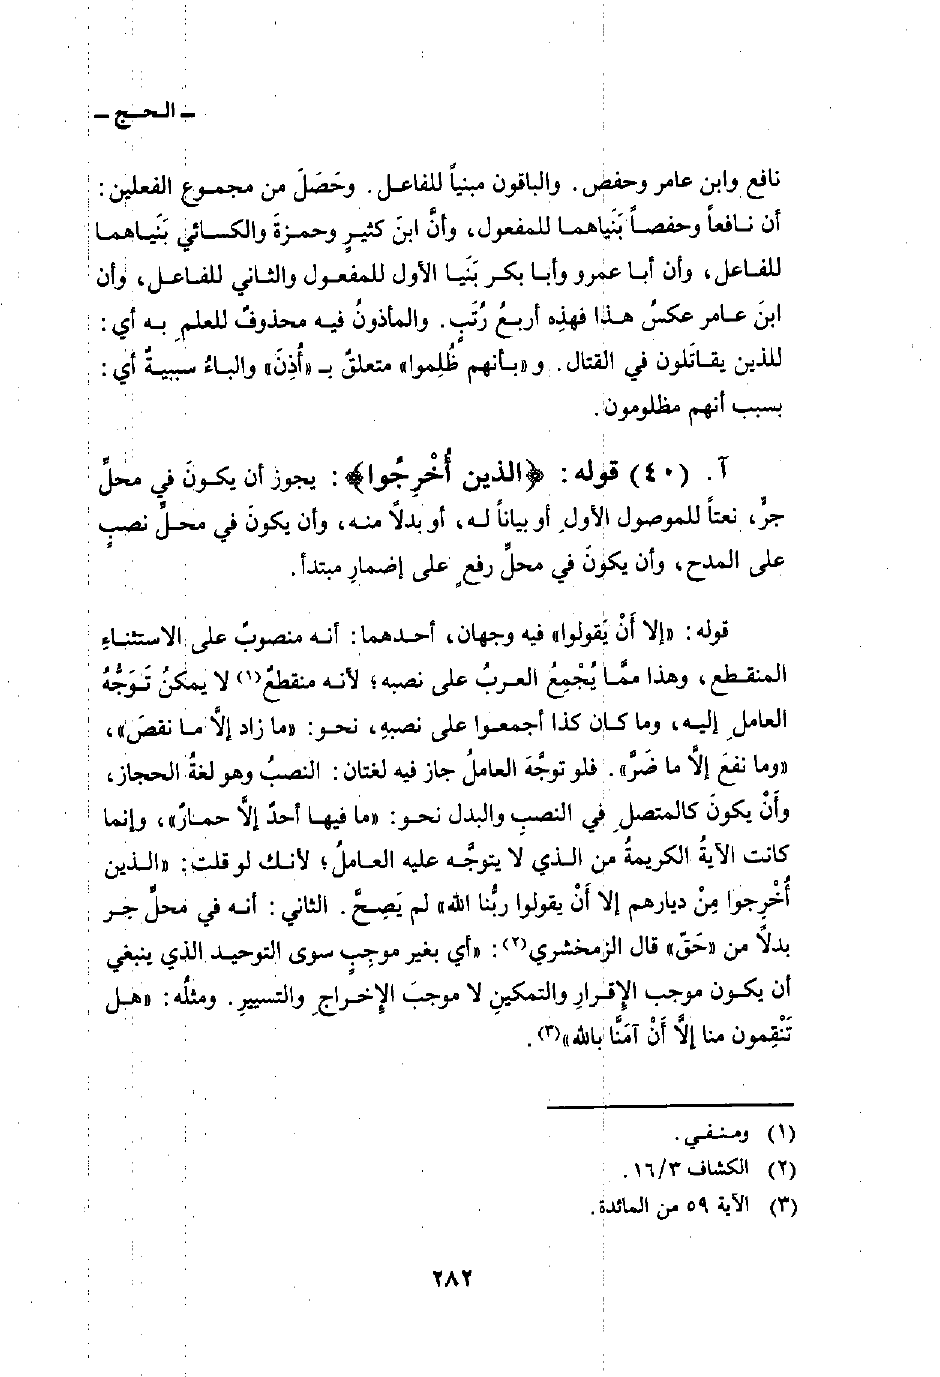 ـ الحج ـ
نافع وابن عامر وحفص. والباقون مبنياً للفاعل. وحَصَلَ من مجموع الفعلين:
أن نافعاً وحفصاً بَنَياهما للمفعول، وأنَّ ابنَ كثيرٍ وحمزةَ والكسائي بَنَياهما
للفاعل، وأن أبا عمرو وأبا بكر بَنَيا الأول للمفعول والثاني للفاعل، وأن
ابنَ عامر عكسُ هذا فهذه أربعُ رُتَبٍ. والمأذونُ فيه محذوفٌ للعلمِ به أي:
للذين يقاتَلون في القتال. و«بأنهم ظُلِموا» متعلقٌ بـ «أُذِنَ» والباءُ سببيةٌ أي:
بسبب أنهم مظلومون.
آ. (٤٠) قوله: ﴿الذين أُخْرِجُوا﴾: يجوز أن يكونَ في محلِّ
جرٍّ، نعتاً للموصول الأولِ أو بياناً له، أو بدلاً منه، وأن يكونَ في محلِّ نصبٍ
على المدح، وأن يكونَ في محلِّ رفعٍ على إضمارِ مبتدأ.
قوله: «إلا أَنْ يَقولوا» فيه وجهان، أحدهما: أنه منصوبٌ على الاستثناءِ
المنقطع، وهذا ممَّا يُجْمِعُ العربُ على نصبه؛ لأنه منقطعٌ(١) لا يمكنُ تَوَجُّهُ
العاملِ إليه، وما كان كذا أجمعوا على نصبِهِ، نحو: «ما زاد إلَّا ما نقصَ»،
«وما نفعَ إلَّا ما ضَرَّ». فلو توجَّهَ العاملُ جاز فيه لغتان: النصبُ وهو لغةُ الحجاز،
وأَنْ يكونَ كالمتصلِ في النصبِ والبدل نحو: «ما فيها أحدٌ إلَّا حمارٌ»، وإنما
كانت الآيةُ الكريمةُ من الذي لا يتوجَّه عليه العاملُ؛ لأنك لو قلت: «الذين
أُخْرِجوا مِنْ ديارهم إلا أَنْ يقولوا ربُّنا الله» لم يَصِحَّ. الثاني: أنه في محلِّ جر
بدلاً من «حَقّ» قال الزمخشري(٢): «أي بغير موجِبٍ سوى التوحيد الذي ينبغي
أن يكون موجب الإقرارِ والتمكينِ لا موجبَ الإخراجِ والتسييرِ. ومثلُه: «هل
تَنْقِمون منا إلَّا أَنْ آمَنَّا بالله»(٣).
(١) ومنفي.
(٢) الكشاف ١٦/٣.
(٣) الآية ٥٩ من المائدة.
٢٨٢